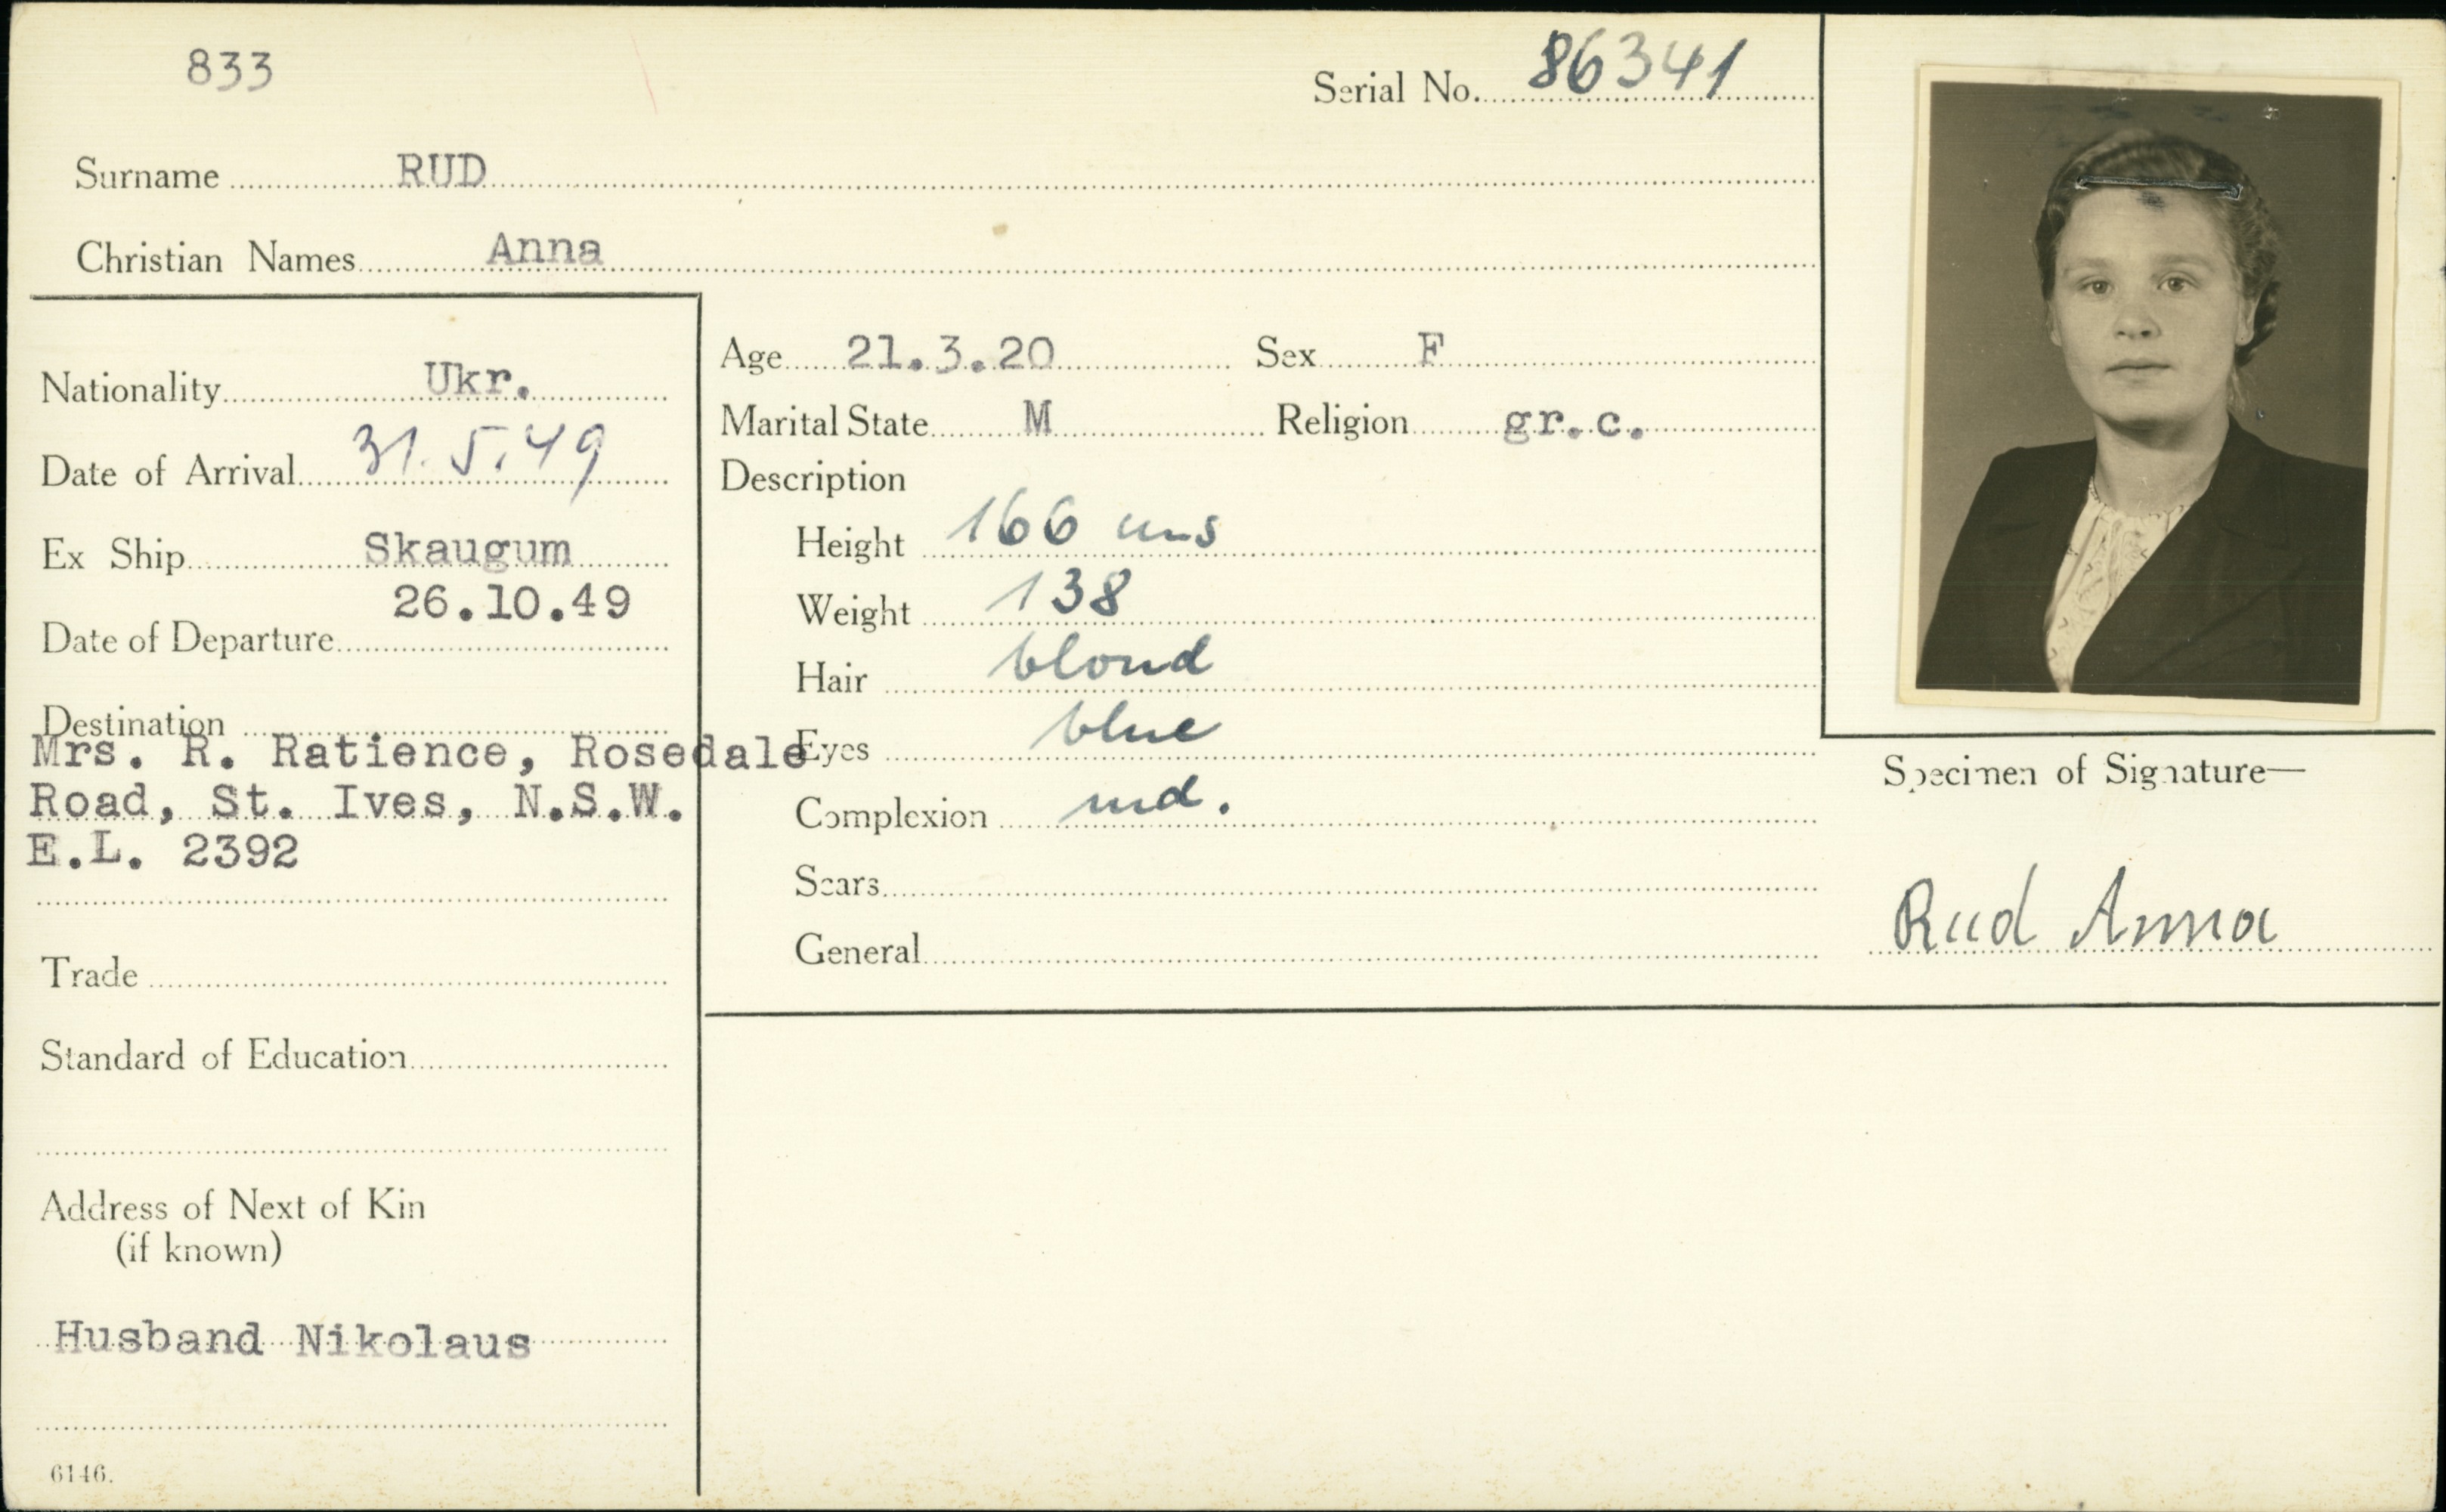 833
Serial No. 86341
Surname RUD
Christian Names Anna
Nationality Ukr.
Date of Arrival 31.5.49
Ex Ship Skaugum
26.10.49
Date of Departure
Destination
Mrs. R. Ratience, Rosedale
Road, St. Ives, N.S.W.
E.L. 2392
Trade
Standard of Education
Address of Next of Kin
(if known)
Husband Nikolaus
6146.
Age 21.3.20 Sex F
Marital State M Religion gr.c.
Description
Height 166 cms
Weight 138
Hair blond
Eyes blue
Complexion md.
Scars
General
Specimen of Signature—
Rud Anna